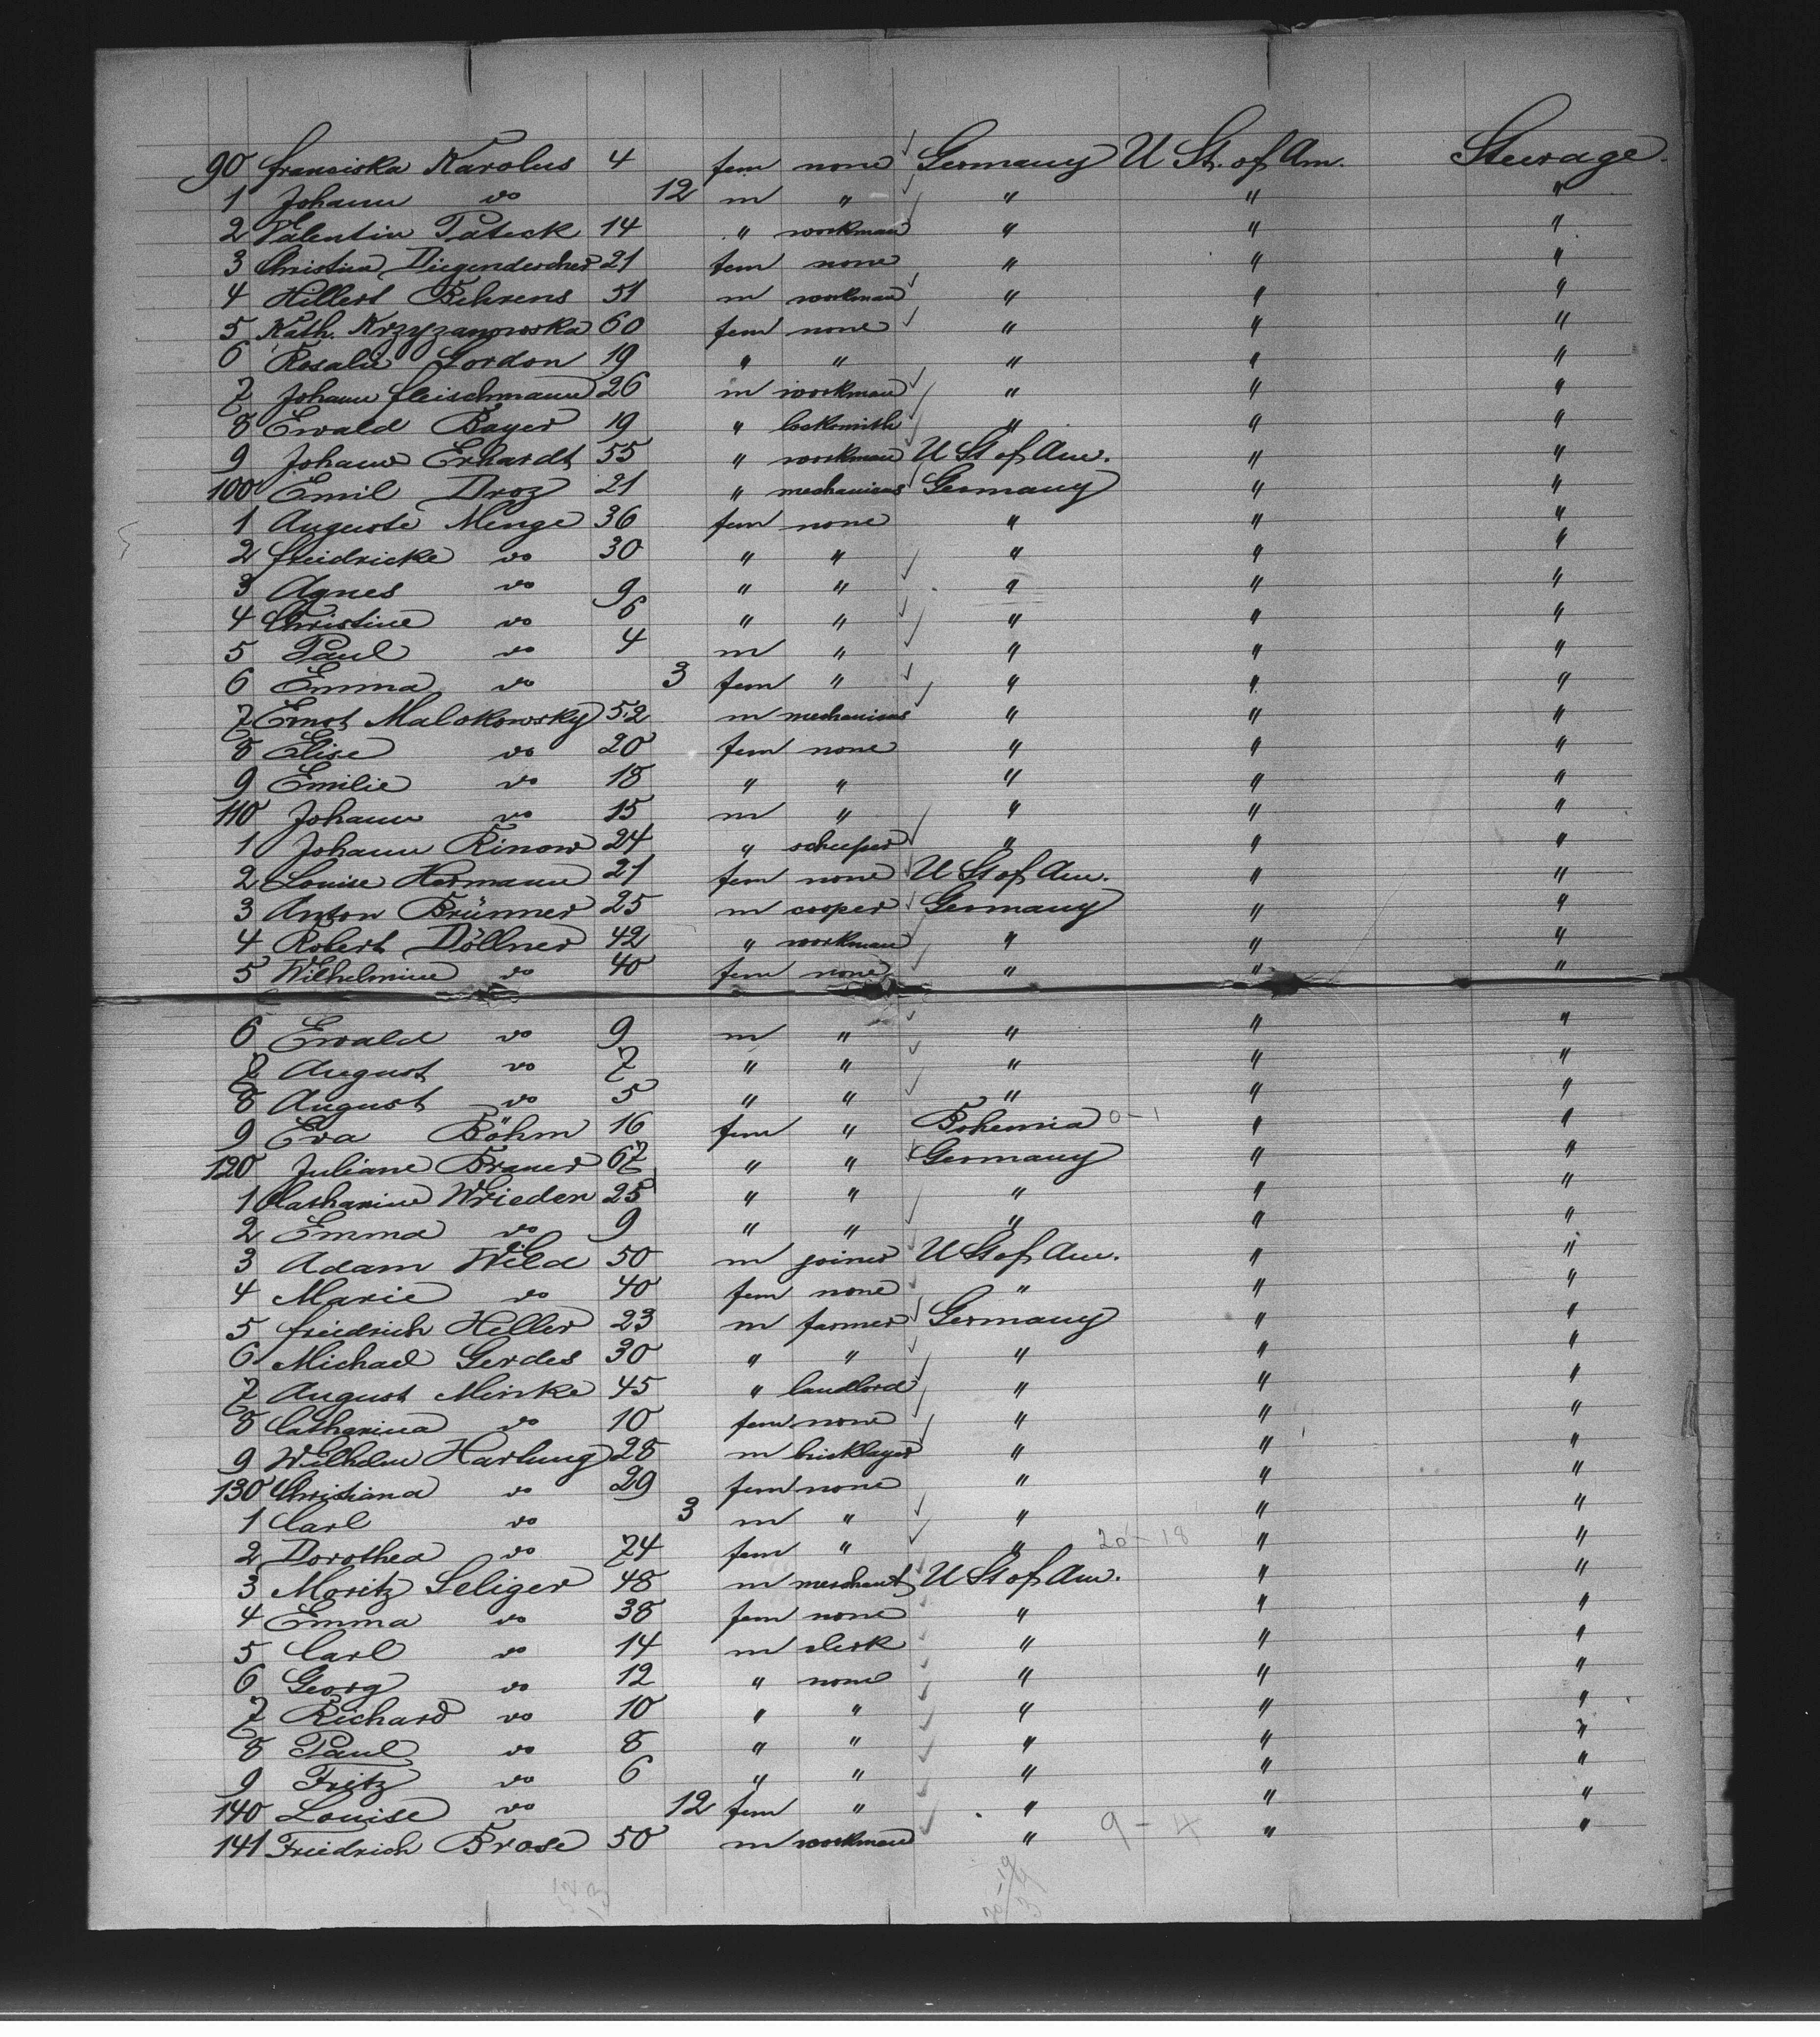 90 Franciska Karolus 4 fem none Germany U St. of Am. Steerage.
1 Johann do 12 m " " " "
2 Valentin Pateck 14 " workman " " "
3 Christine Diegendescher 21 fem none " " "
4 Hillert Behrens 51 m workman " " "
5 Kath. Krzyzanowska 60 fem none " " "
6 Rosalie Gordon 19 " " " " "
7 Johann Fleischmann 26 m workman " " "
8 Ewald Bayer 19 " locksmith " " "
9 Johann Erhardt 55 " workman U St of Am. " "
100 Emil Droz 21 " mechanicus Germany " "
1 Auguste Menge 36 fem none " " "
2 Freidricke do 30 " " " " "
3 Agnes do 9 " " " " "
4 Christine do 6 " " " " "
5 Paul do 4 m " " " "
6 Emma do 3 fem " " " "
7 Ernst Malokowsky 52 m mechanicus " " "
8 Elise do 20 fem none " " "
9 Emilie do 18 " " " " "
110 Johann do 15 m " " " "
1 Johann Rinow 24 " scheeper " " "
2 Louise Hermann 21 fem none U St of Am. " "
3 Anton Brünner 25 m cooper Germany " "
4 Robert Döllner 42 " workman " " "
5 Wilhelmine do 40 fem none " " "
6 Ewald do 9 m " " " "
7 August do 7 " " " " "
8 August do 5 " " " " "
9 Eva Böhm 16 fem " Bohemia 0-1 " "
120 Juliane Brauer 67 " " Germany " "
1 Catharine Wrieden 25 " " " " "
2 Emma do 9 " " " " "
3 Adam Wild 50 m joiner U St of Am. " "
4 Marie do 40 fem none " " "
5 Friedrich Heller 23 m farmer Germany " "
6 Michael Gerdes 30 " " " " "
7 August Minke 45 " landlord " " "
8 Catharina do 10 fem none " " "
9 Wilhelm Hartung 28 m bricklayer " " "
130 Christiana do 29 fem none " " "
1 Carl do 3 m " " " "
2 Dorothea do 74 fem " " 20-18 " "
3 Moritz Seliger 48 m merchant U St of Am. " "
4 Emma do 38 fem none " " "
5 Carl do 14 m clerk " " "
6 Georg do 12 " none " " "
7 Richard do 10 " " " " "
8 Paul do 8 " " " " "
9 Fritz do 6 " " " " "
140 Louise do 12 fem " " " "
141 Friedrich Brose 50 m workman " 9-4 " "